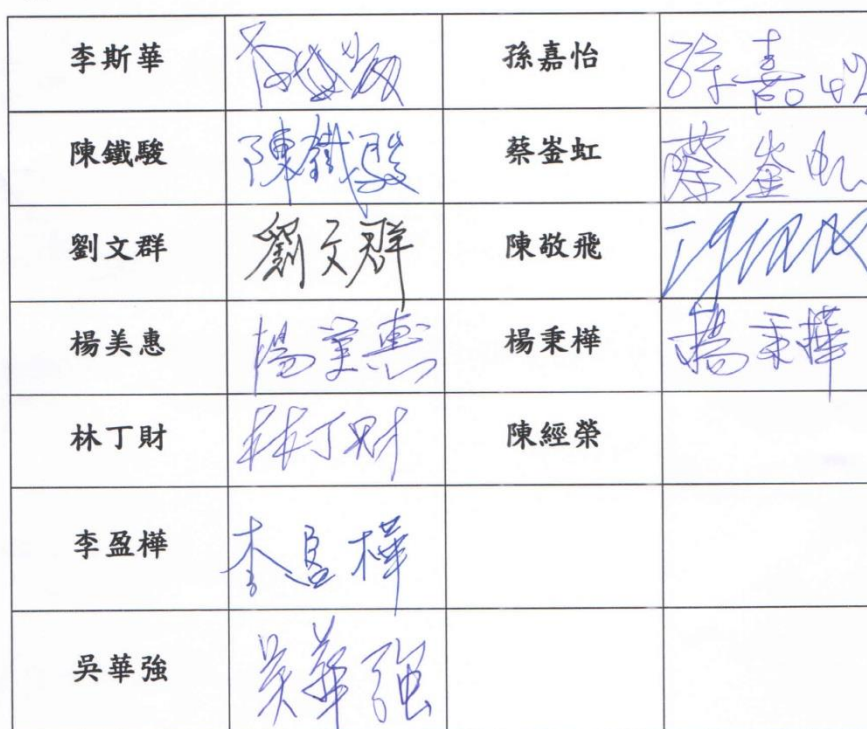 李斯華 孫嘉怡 孫嘉怡
陳鐵駿 陳鐵駿 蔡崟虹 蔡崟虹
劉文群 劉文群 陳敬飛
楊美惠 楊美惠 楊秉樺 楊秉樺
林丁財 林丁財 陳經榮
李盈樺 李盈樺
吳華強 吳華強